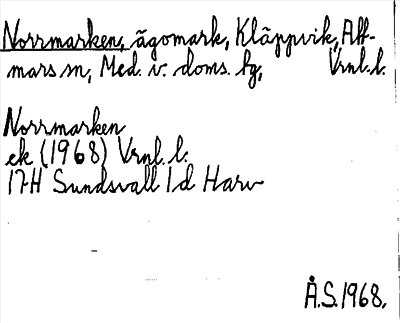 Norrmarken, ägomark, Kläppvik, Att-
mars sn, Med. v. doms. tg, Vrnl. l.
Norrmarken
ek (1968) Vrnl. l.
17H Sundsvall 1d Harv
Å.S. 1968.